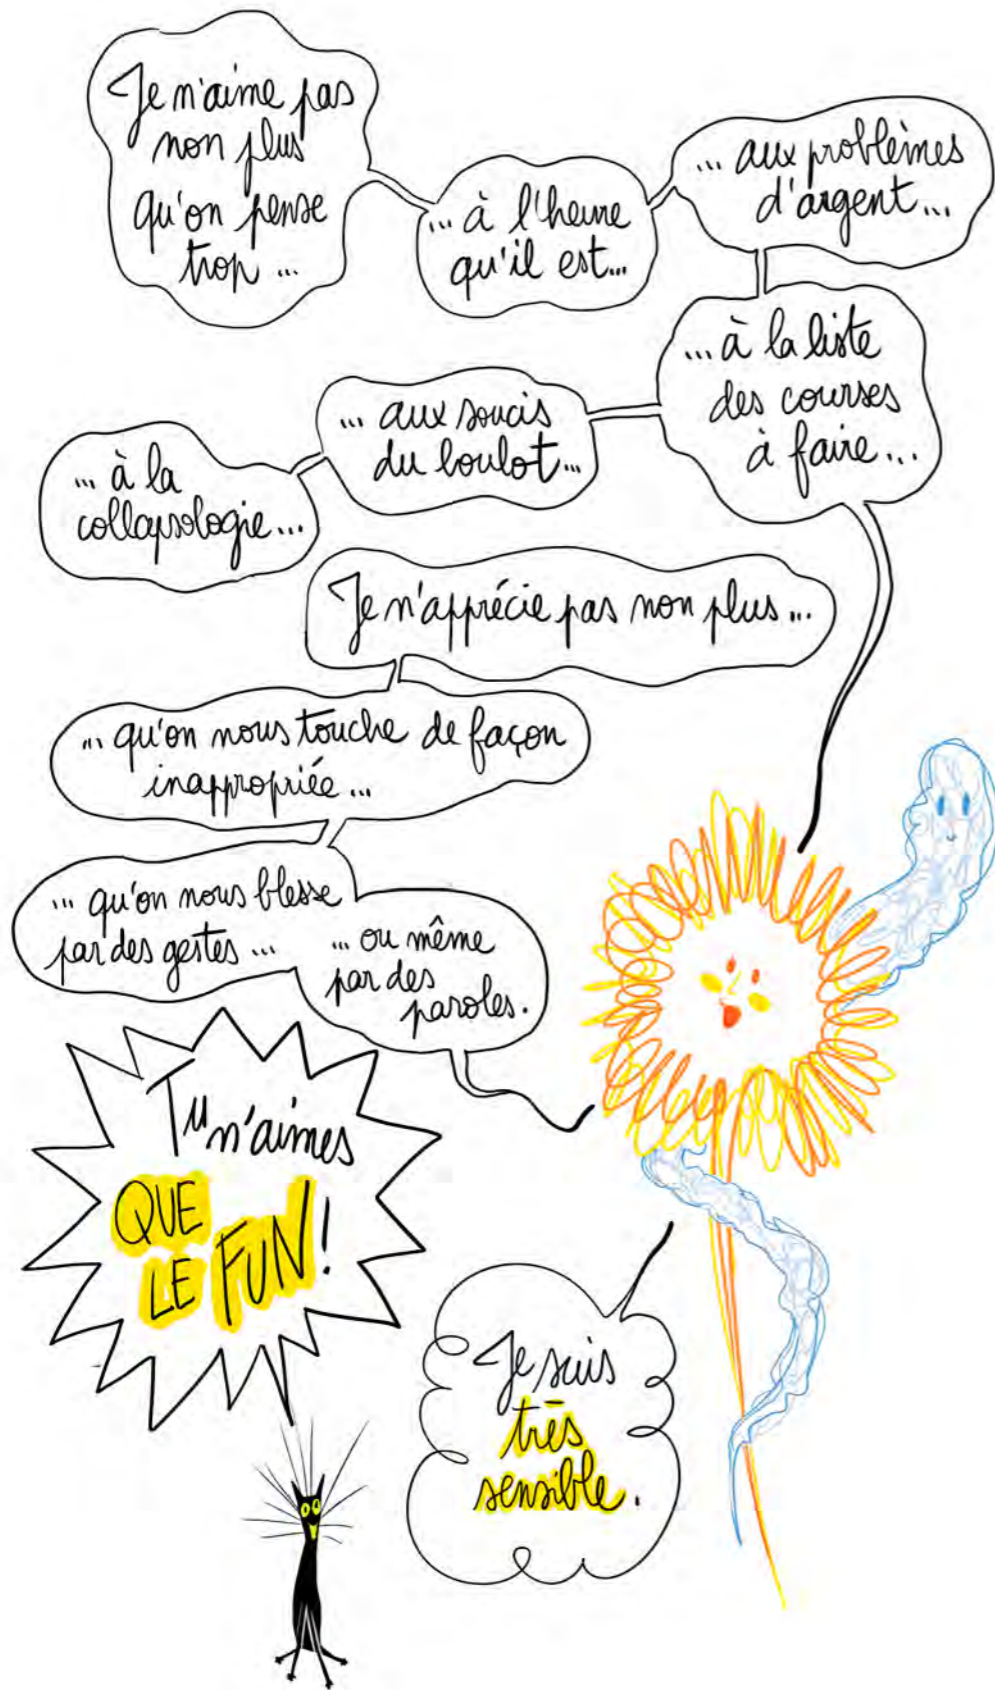 Je n'aime pas
non plus
qu'on pense
trop ...
... à l'heure
qu'il est...
... aux problèmes
d'argent...
... à la liste
des courses
à faire...
... aux soucis
du boulot...
... à la
collapsologie...
Je n'apprécie pas non plus...
... qu'on nous touche de façon
inappropriée...
... qu'on nous blesse
par des gestes ...
... ou même
par des
paroles.
Tu n'aimes
QUE
LE FUN!
Je suis
très
sensible.